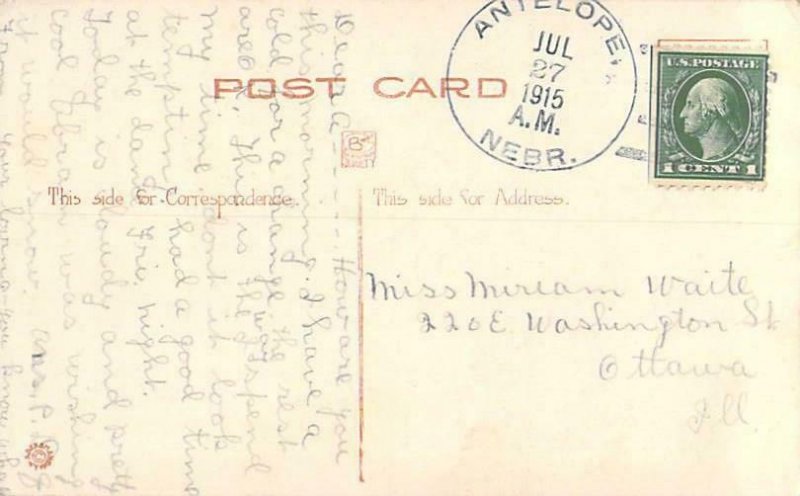 POST CARD
ANTELOPE,
JUL
27
1915
A.M.
NEBR.
U.S. POSTAGE
1 CENT 1
This side for Correspondence.
This side for Address.
Miss Miriam Waite
220 E Washington St
Ottawa
Ill.
How are you
this morning. I have a
cold for a change, the rest
are This is the way I spend
my time dont it look
tempting. I had a good time
at the dance Fri. night.
Today is cloudy and pretty
cool. Abram was wishing
it would snow. Ans. P.
From your you know who